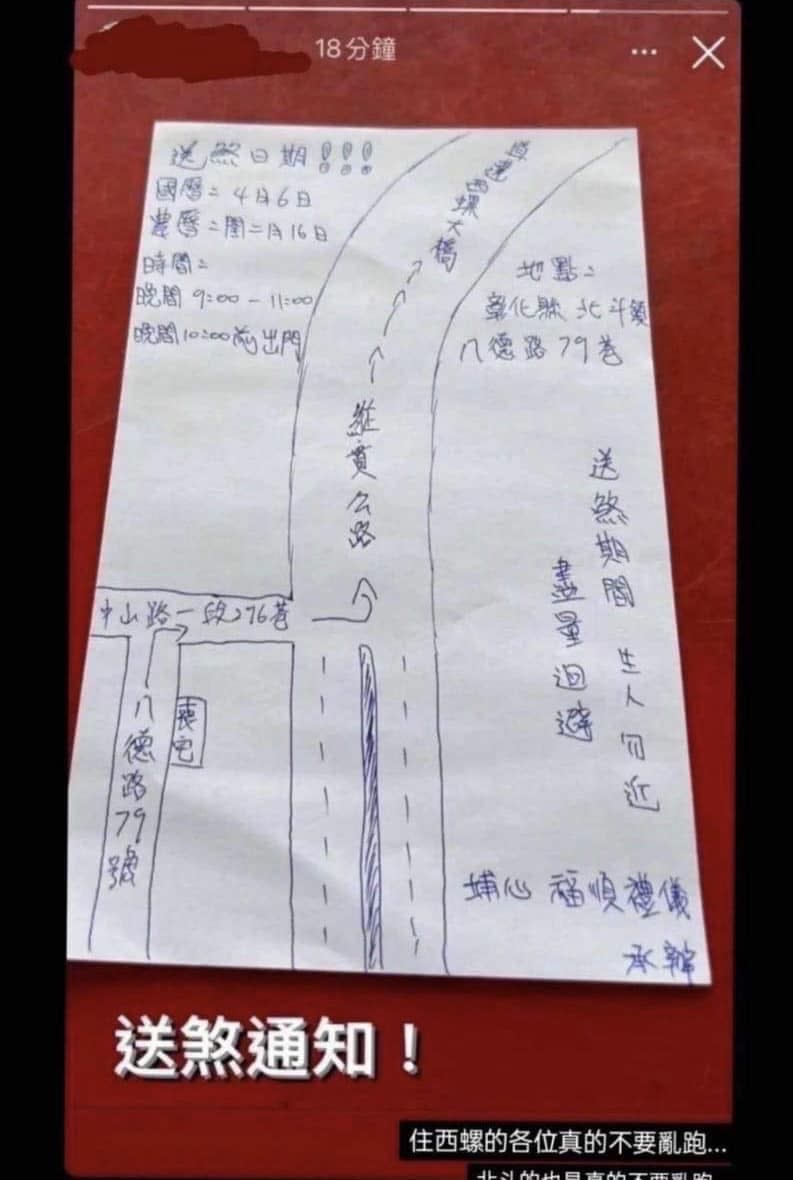 18分鐘
送煞日期!!!
國曆：4月6日
農曆：閏二月16日
時間：
晚間 9:00 - 11:00
晚間10:00前出門
直達西螺大橋
地點：
彰化縣 北斗鎮
八德路 79巷
縱貫公路
中山路一段276巷
喪宅
八德路79號
送煞期間 生人勿近
盡量迴避
埔心 福順禮儀
承辦
送煞通知！
住西螺的各位真的不要亂跑...
北斗的也是真的不要亂跑